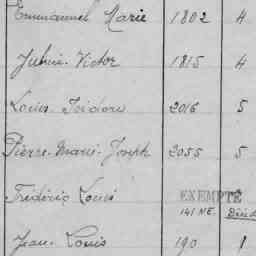 Emmanuel Marie 1802 4
Julien-Victor 1815 4
Louis-Isidore 2016 5
Pierre-Marie-Joseph 2055 5
Frédéric Louis EXEMPTÉ
141 NE.
Jean-Louis 190 1